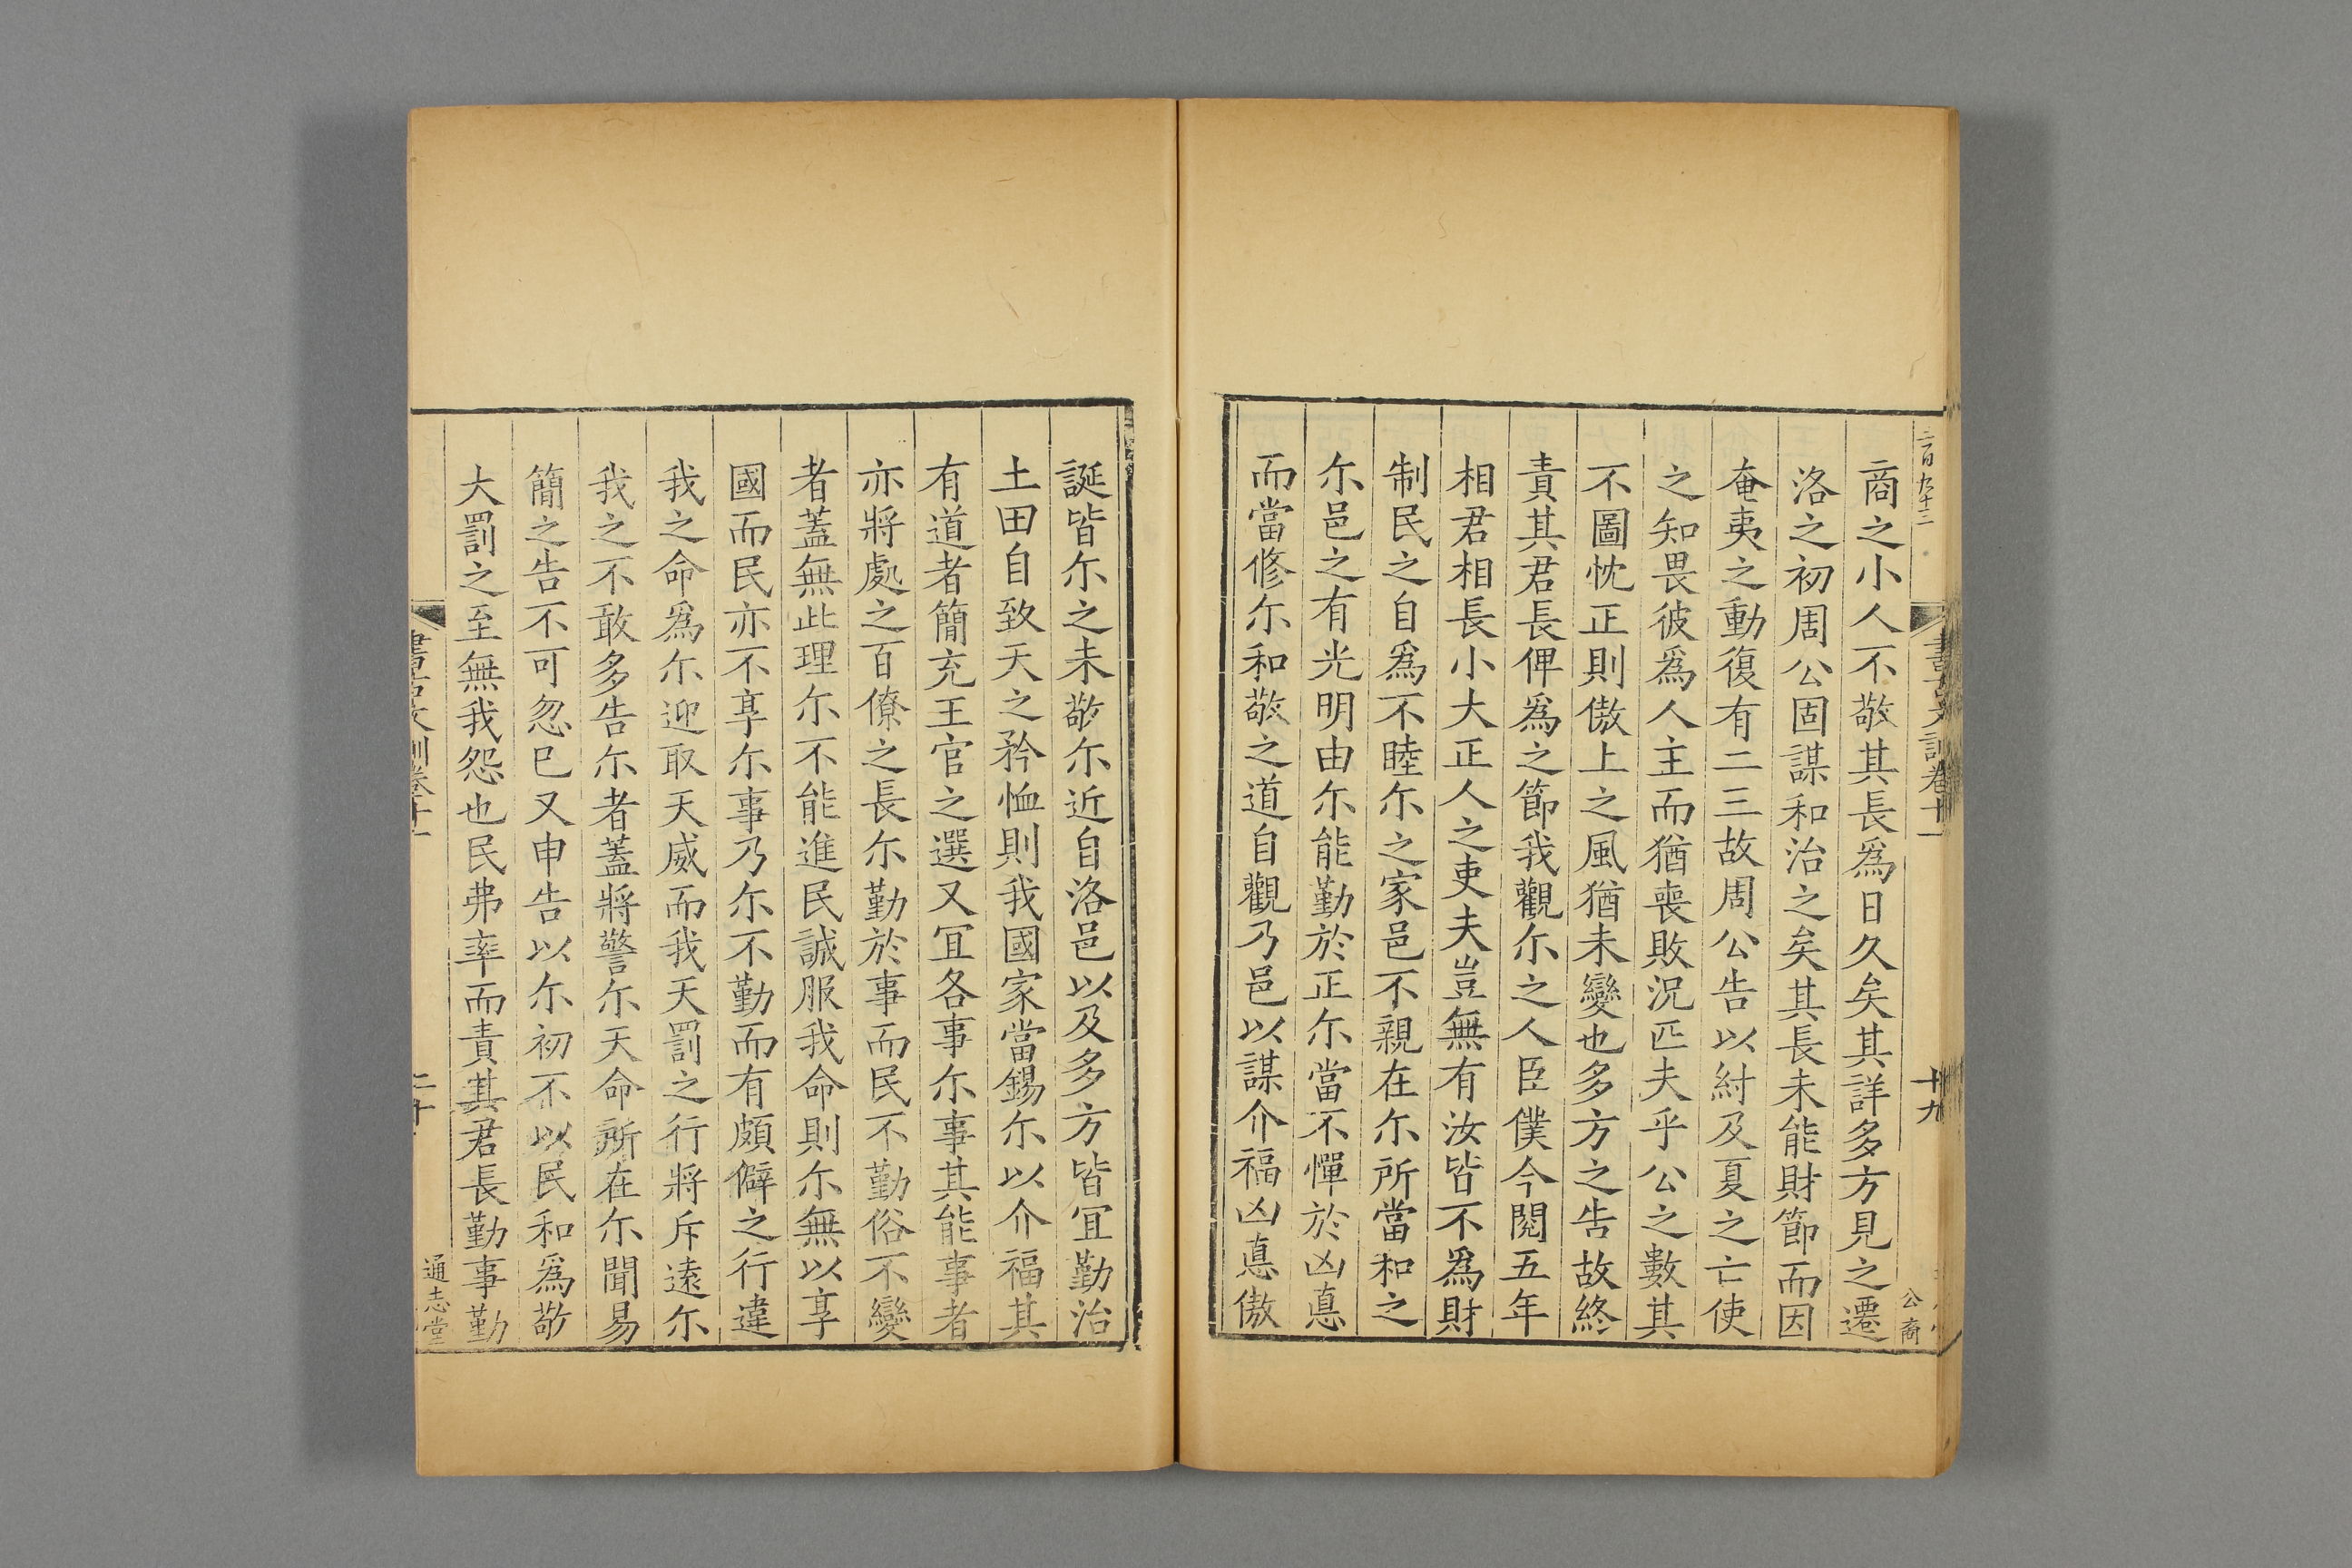 二百九十三
書古文訓卷十一
十九
公裔
商之小人不敬其長爲日久矣其詳多方見之遷
洛之初周公固謀和治之矣其長未能財節而因
奄夷之動復有二三故周公告以紂及夏之亡使
之知畏彼爲人主而猶喪敗況匹夫乎公之數其
不圖忱正則傲上之風猶未變也多方之告故終
責其君長俾爲之節我觀尒之人臣僕今閱五年
相君相長小大正人之吏夫豈無有汝皆不爲財
制民之自爲不睦尒之家邑不親在尒所當和之
尒邑之有光明由尒能勤於正尒當不憚於凶悳
而當修尒和敬之道自觀乃邑以謀介福凶悳傲
誕皆尒之未敬尒近自洛邑以及多方皆宜勤治
土田自致天之矜恤則我國家當錫尒以介福其
有道者簡充王官之選又冝各事尒事其能事者
亦將處之百僚之長尒勤於事而民不勤俗不變
者蓋無此理尒不能進民誠服我命則尒無以享
國而民亦不享尒事乃尒不勤而有頗僻之行違
我之命爲尒迎取天威而我天罰之行將斥遠尒
我之不敢多告尒者蓋將警尒天命所在尒聞易
簡之告不可忽巳又申告以尒初不以民和爲敬
大罰之至無我怨也民弗率而責其君長勤事勤
書古文訓卷十一
二十
通志堂